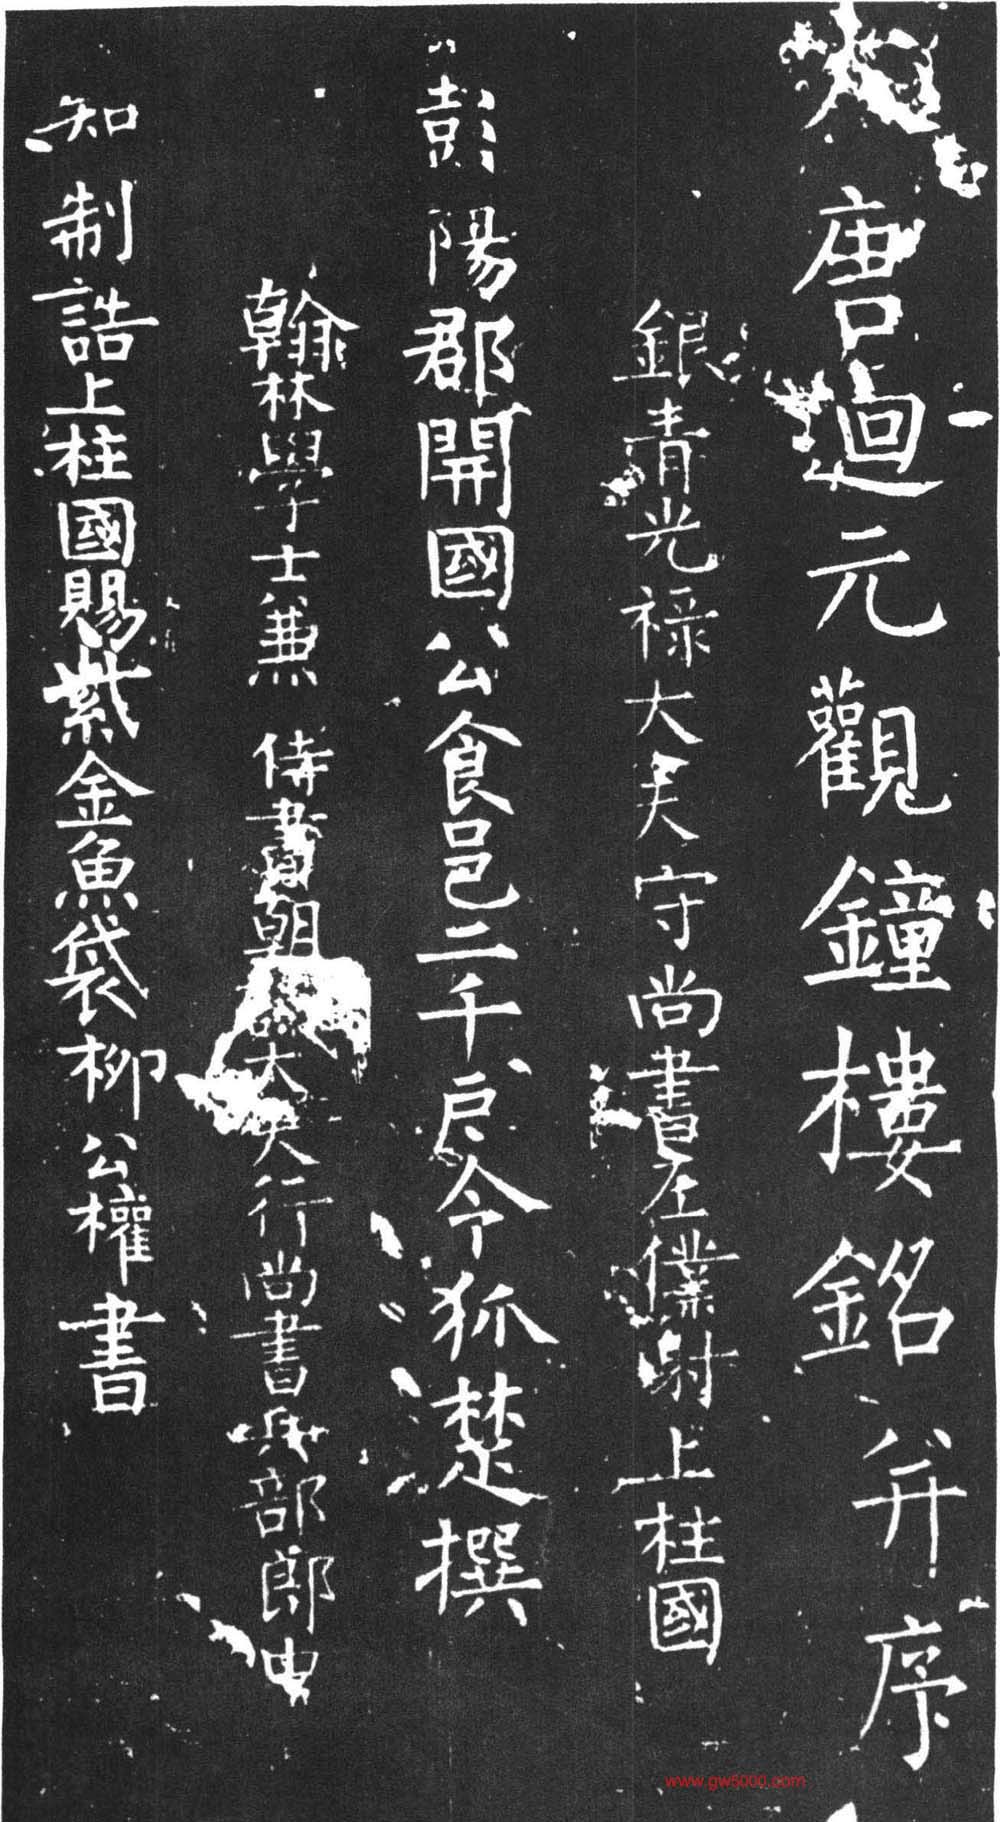 大唐迴元觀鐘樓銘并序
銀青光祿大夫守尚書左僕射上柱國
彭陽郡開國公食邑二千戶令狐楚撰
翰林學士兼侍書朝議大夫行尚書兵部郎中
知制誥上柱國賜紫金魚袋柳公權書
www.gw5000.com